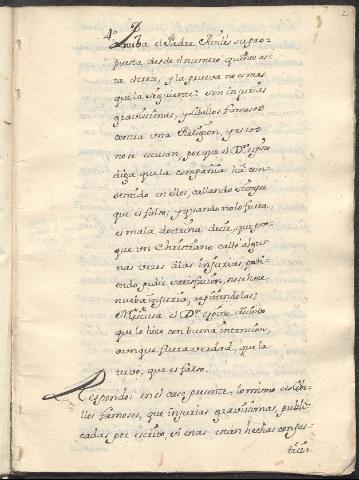 4º Prueba el Padre Reniis su pro-
puesta desde el numero quinto as-
ta, y la prueva no es mas
que la siguiente: son injurias
gravissimas, y libellos famosos
contra una Religion, y esto
no se escusan, porque el Dr. espino
diga que la compañia ha con-
sentido en ellos, callando siempre
que es falso; y quando no lo fuera,
es mala doctrina decir, que por-
que un Christiano calle algu-
nas vezes a las injurias, pudi-
endo pedir satisfacion, no se hace
nueba injuria, repitiendolas;
escusa el Dr. espino, diciendo
que lo hizo con buena intencion,
aunque fuera verdad, que la
tuvo, que es falso.
Respondo: en el caso presente, lo mismo es libe-
llos famosos, que injurias gravissimas, publi-
cadas por escrito, si estas estan hechas con jus-
ticia